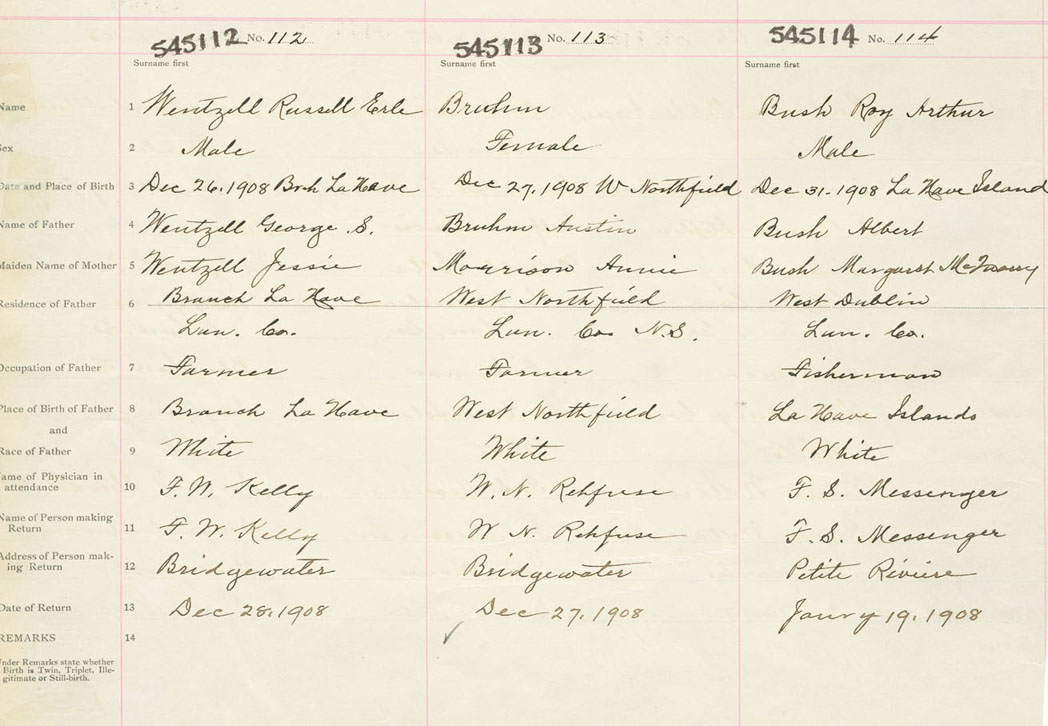 545112 No. 112 545113 No. 113 545114 No. 114
Surname first Surname first Surname first
Name 1 Wentzell Russell Erle Bruhm Bush Roy Arthur
Sex 2 Male Female Male
Date and Place of Birth 3 Dec 26. 1908 Brh La Have Dec 27, 1908 W Northfield Dec 31. 1908 La Have Island
Name of Father 4 Wentzell George .S. Bruhm Austin Bush Albert
Maiden Name of Mother 5 Wentzell Jessie Morrison Annie Bush Margaret
Residence of Father 6 Branch La Have West Northfield West Dublin
Lun. Co. Lun. Co. N.S. Lun. Co.
Occupation of Father 7 Farmer Farmer Fisherman
Place of Birth of Father 8 Branch La Have West Northfield La Have Islands
and
Race of Father 9 White White White
Name of Physician in
attendance 10 F. W. Kelly W. N. Rehfuse F. S. Messenger
Name of Person making
Return 11 F. W. Kelly W N. Rehfuse F. S. Messenger
Address of Person mak-
ing Return 12 Bridgewater Bridgewater Petite Riviere
Date of Return 13 Dec 28. 1908 Dec 27, 1908 Janry 19, 1908
REMARKS 14
Under Remarks state whether
Birth is Twin, Triplet, Ille-
gitimate or Still-birth.